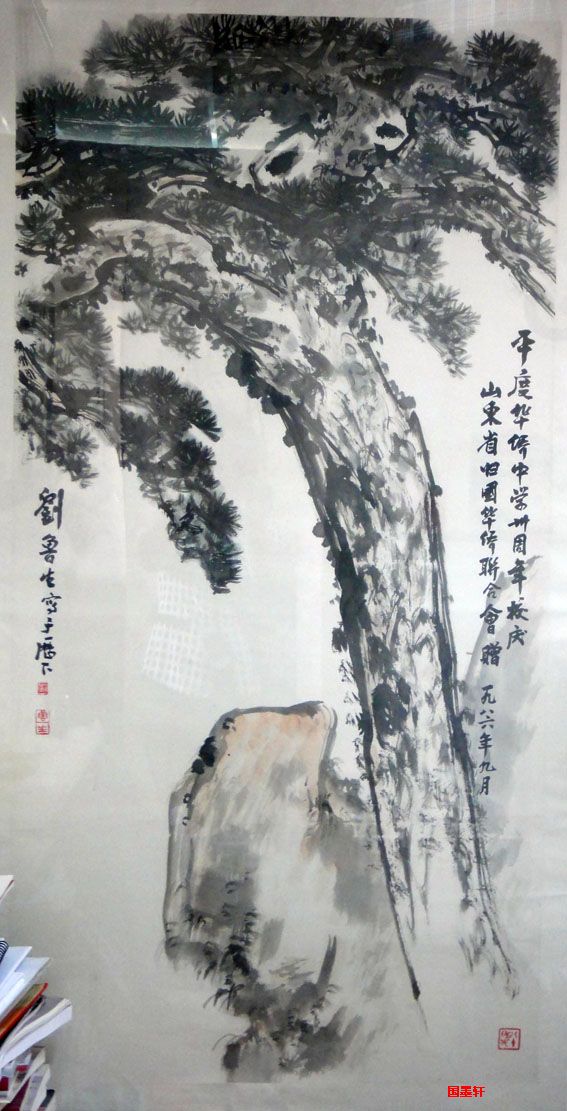 平度华侨中学卅周年校庆
山东省归国华侨联合會贈
一九八六年九月
劉魯生寫于歷下
国墨轩